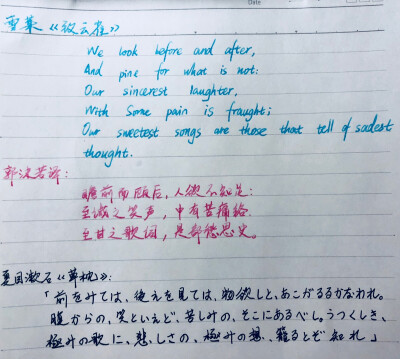 Date
雪莱《致云雀》
We look before and after,
And pine for what is not:
Our sincerest laughter,
With Some pain is fraught;
Our sweetest songs are those that tell of sadest
thought.
郭沫若译:
瞻前而顾后,人欲不知足:
至诚之笑声,中有苦痛络.
至甘之歌词,是部愁思史。
夏目漱石《草枕》:
「前をみては、後えを見ては、物欲しと、あこがるるかなわれ。
腹からの、笑といえど、苦しみの、そこにあるべし。うつくしき、
極みの歌に、悲しさの、極みの想、籠るとぞ知れ」